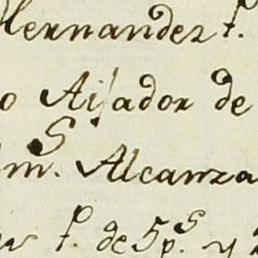 Hernandez p.
o Aijador de
m.s Alcanza
p. de 5 p.s y